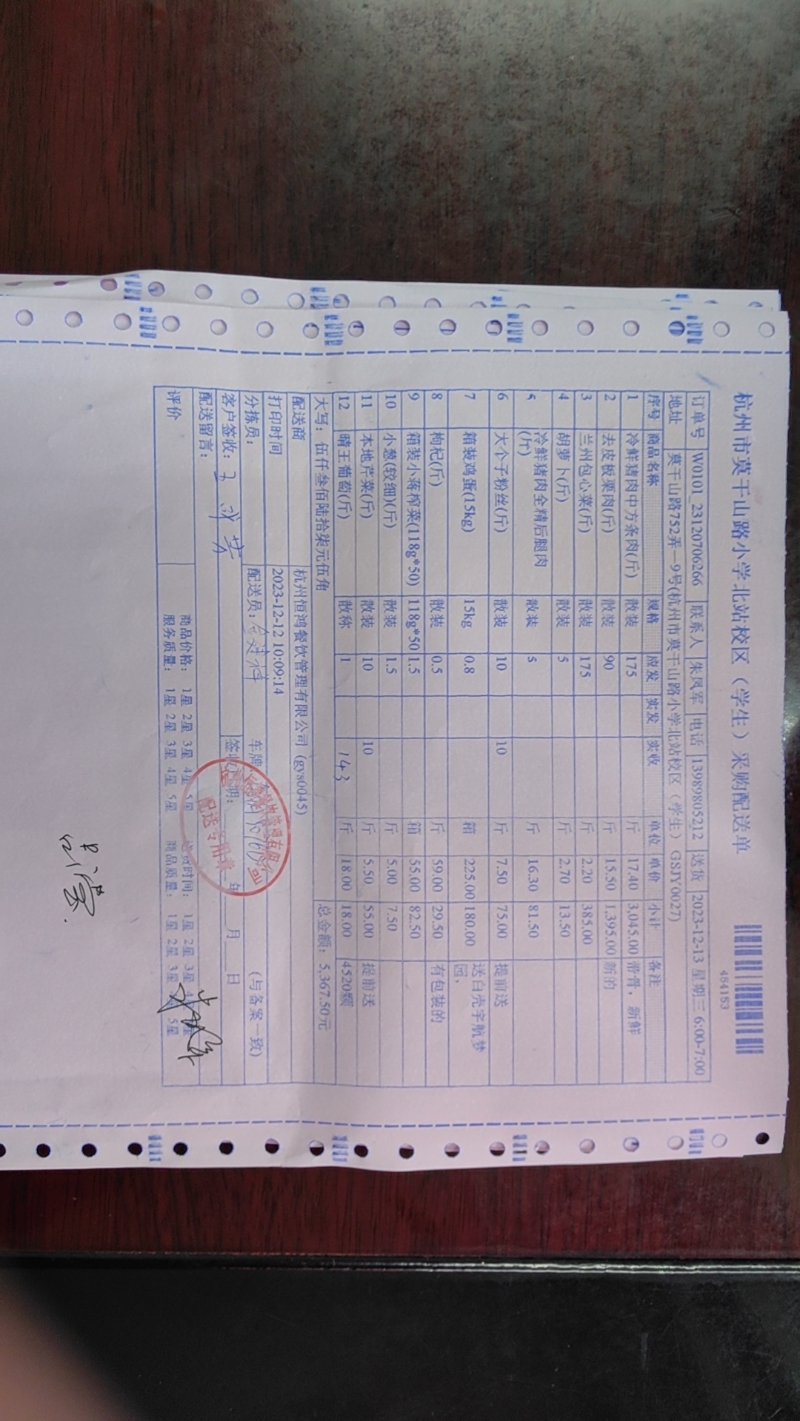 杭州市莫干山路小学北站校区（学生）采购配送单
484153
订单号 W0101_23120706266 联系人 朱凤军 电话 13989805212 送货 2023-12-13 星期三 6:00-7:00
地址 莫干山路752弄一9号(杭州市莫干山路小学北站校区（学生）GSJY0027)
序号 商品名称 规格 应发 实发 实收 单位 单价 小计 备注
1 冷鲜猪肉中方条肉(斤) 散装 175 斤 17.40 3,045.00 带骨，新鲜
2 去皮板栗肉(斤) 散装 90 斤 15.50 1,395.00 新的
3 兰州包心菜(斤) 散装 175 斤 2.20 385.00
4 胡萝卜(斤) 散装 5 斤 2.70 13.50
5 冷鲜猪肉全精后腿肉(斤) 散装 5 斤 16.30 81.50
6 大个子粉丝(斤) 散装 10 10 斤 7.50 75.00 提前送
7 箱装鸡蛋(15kg) 15kg 0.8 箱 225.00 180.00 送白壳宇航梦园，
8 枸杞(斤) 散装 0.5 斤 59.00 29.50 有包装的
9 箱装小蒋榨菜(118g*50) 118g*50 1.5 箱 55.00 82.50
10 小葱(较细)(斤) 散装 1.5 斤 5.00 7.50
11 本地芹菜(斤) 散装 10 10 斤 5.50 55.00 提前送
12 晴王葡萄(斤) 散称 1 143 斤 18.00 18.00 4520颗
大写：伍仟叁佰陆拾柒元伍角 总金额：5,367.50元
配送商 杭州恒鸿餐饮管理有限公司 (gys0045)
打印时间 2023-12-12 10:09:14
分拣员： 配送员： 车牌 (与备案一致)
客户签收： 签收日期： 年 月 日
配送留言：
配送专用章
评价 商品价格： 1星 2星 3星 4星 5星 送货时间： 1星 2星 3星
服务质量： 1星 2星 3星 4星 5星 商品质量： 1星 2星 3星 5星